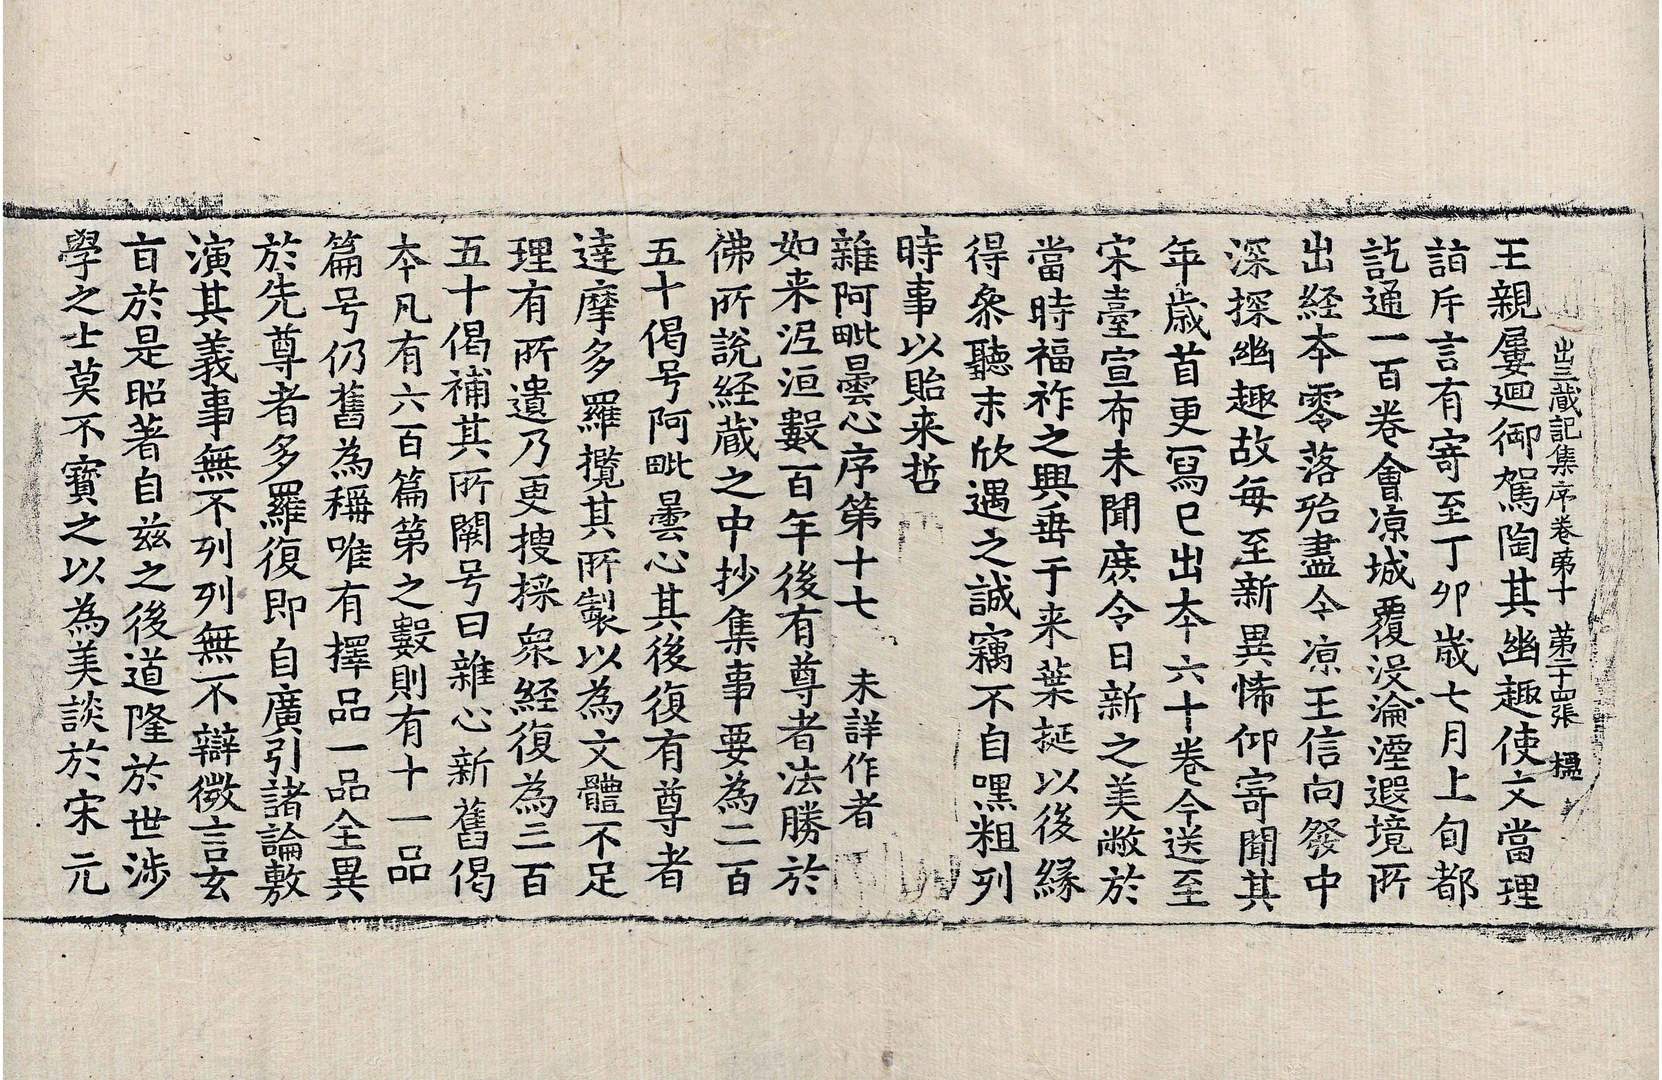 出三藏記集序卷第十 第二十四張 楹
王親屢迴御駕陶其幽趣使文當理
詣斥言有寄至丁卯歲七月上旬都
訖通一百卷會涼城覆没淪湮遐境所
出経本零落殆盡今涼王信向發中
深探幽趣故每至新異悕仰寄聞其
年歲首更冩已出本六十卷今送至
宋臺宣布未聞庶今日新之美敞於
當時福祚之興垂于来葉挻以後縁
得叅聽末欣遇之誠竊不自嘿粗列
時事以貽来哲
雜阿毗曇心序第十七 未詳作者
如来泥洹數百年後有尊者法勝於
佛所說経藏之中抄集事要為二百
五十偈号阿毗曇心其後復有尊者
達摩多羅攬其所製以為文體不足
理有所遺乃更搜採眾経復為三百
五十偈補其所闕号曰雜心新舊偈
本凡有六百篇第之數則有十一品
篇号仍舊為稱唯有擇品一品全異
於先尊者多羅復即自廣引諸論敷
演其義事無不列列無不辯微言玄
旨於是昭著自茲之後道隆於世涉
學之士莫不寶之以為美談於宋元